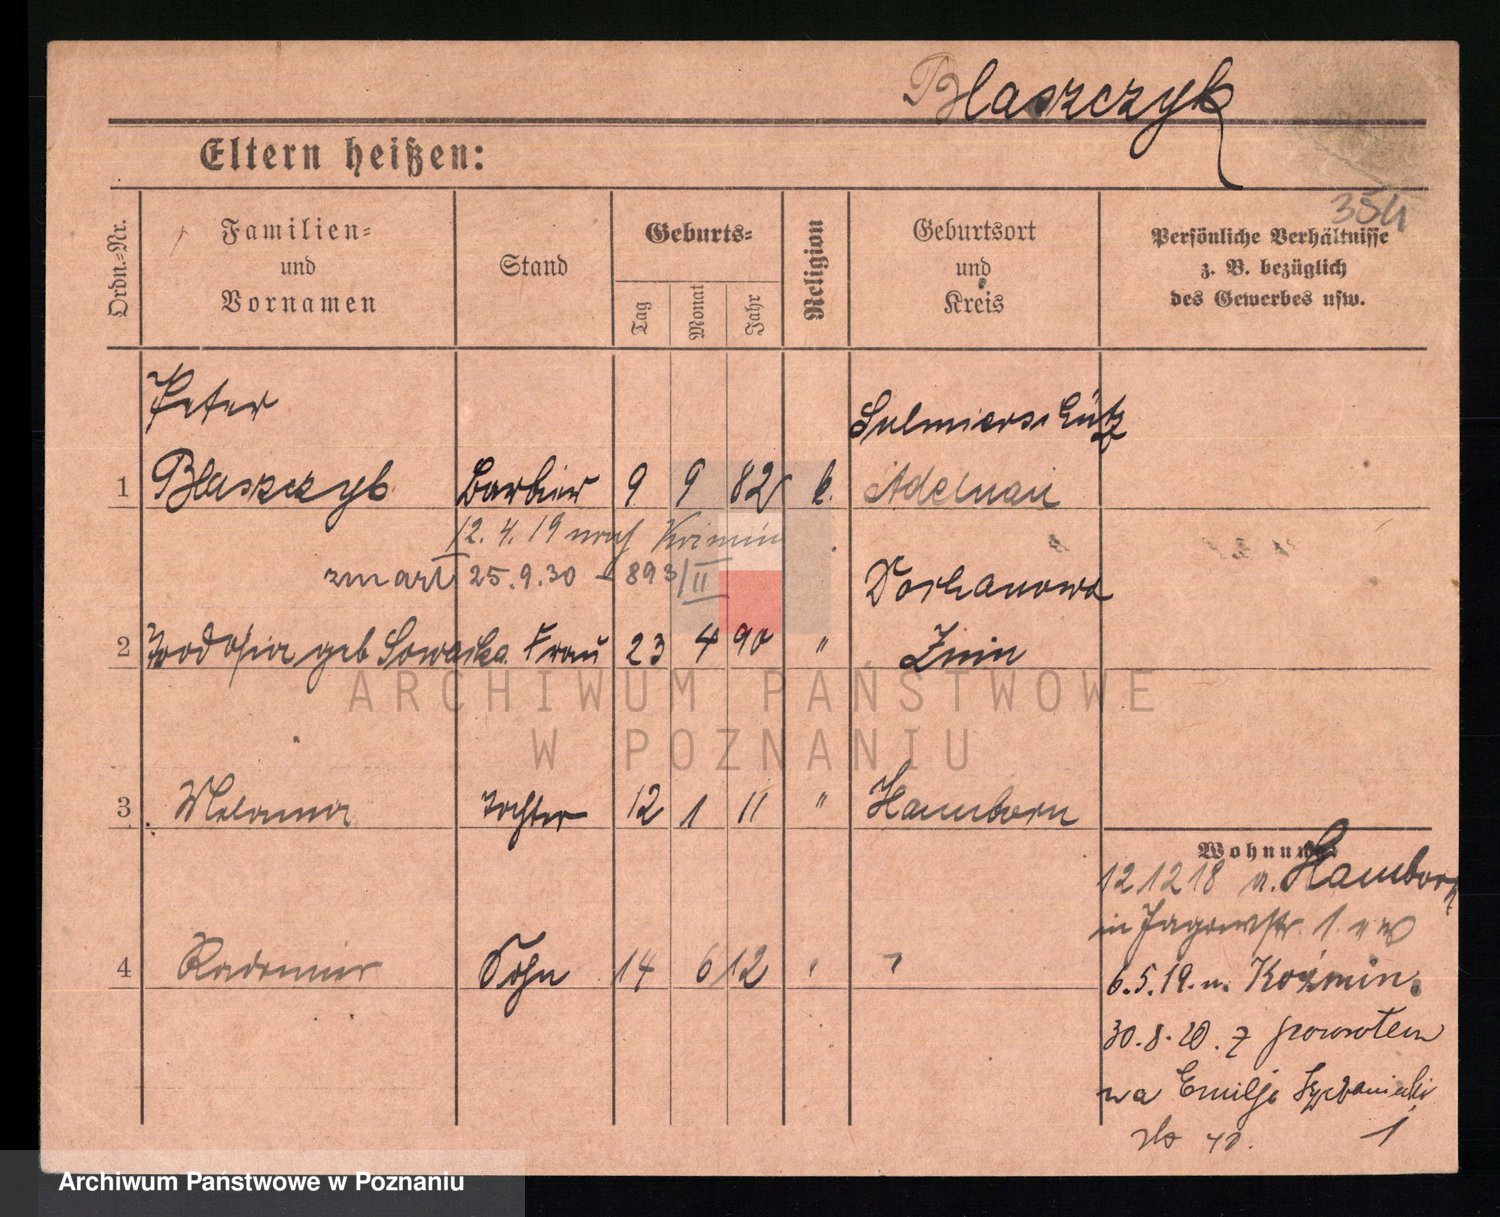 Blaszczyk
Eltern heißen:
354
Ordn.-Nr.
Familien-
und
Vornamen
Stand
Geburts-
Tag
Monat
Jahr
Religion
Geburtsort
und
Kreis
Persönliche Verhältnisse
z. B. bezüglich
des Gewerbes usw.
Peter
Sulmierschütz
1 Blaszczyk Barbier 9 9 82 k. Adelnau
12. 4. 19 nach
zmarł 25.9.30 - 893/II
2 geb Sowaska Frau 23 4 90 " Znin
ARCHIWUM PAŃSTWOWE
W POZNANIU
3 Melania Tochter 12 1 11 " Hamborn
Wohnung
12 12 18 v. Hamborn
in Jagowstr. 1.
4 Radomir Sohn 14 6 12 "
6.5.19. n. Koźmin.
30.8.20. z powrotem
na Emilje
40. 1
Archiwum Państwowe w Poznaniu